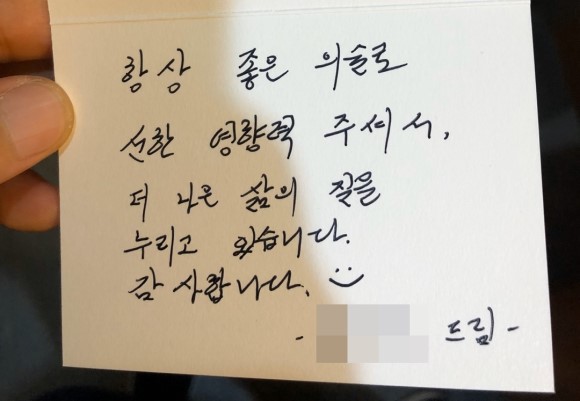 항상 좋은 의술로
선한 영향력 주셔서,
더 나은 삶의 질을
누리고 있습니다.
감사합니다. :)
- 드림 -